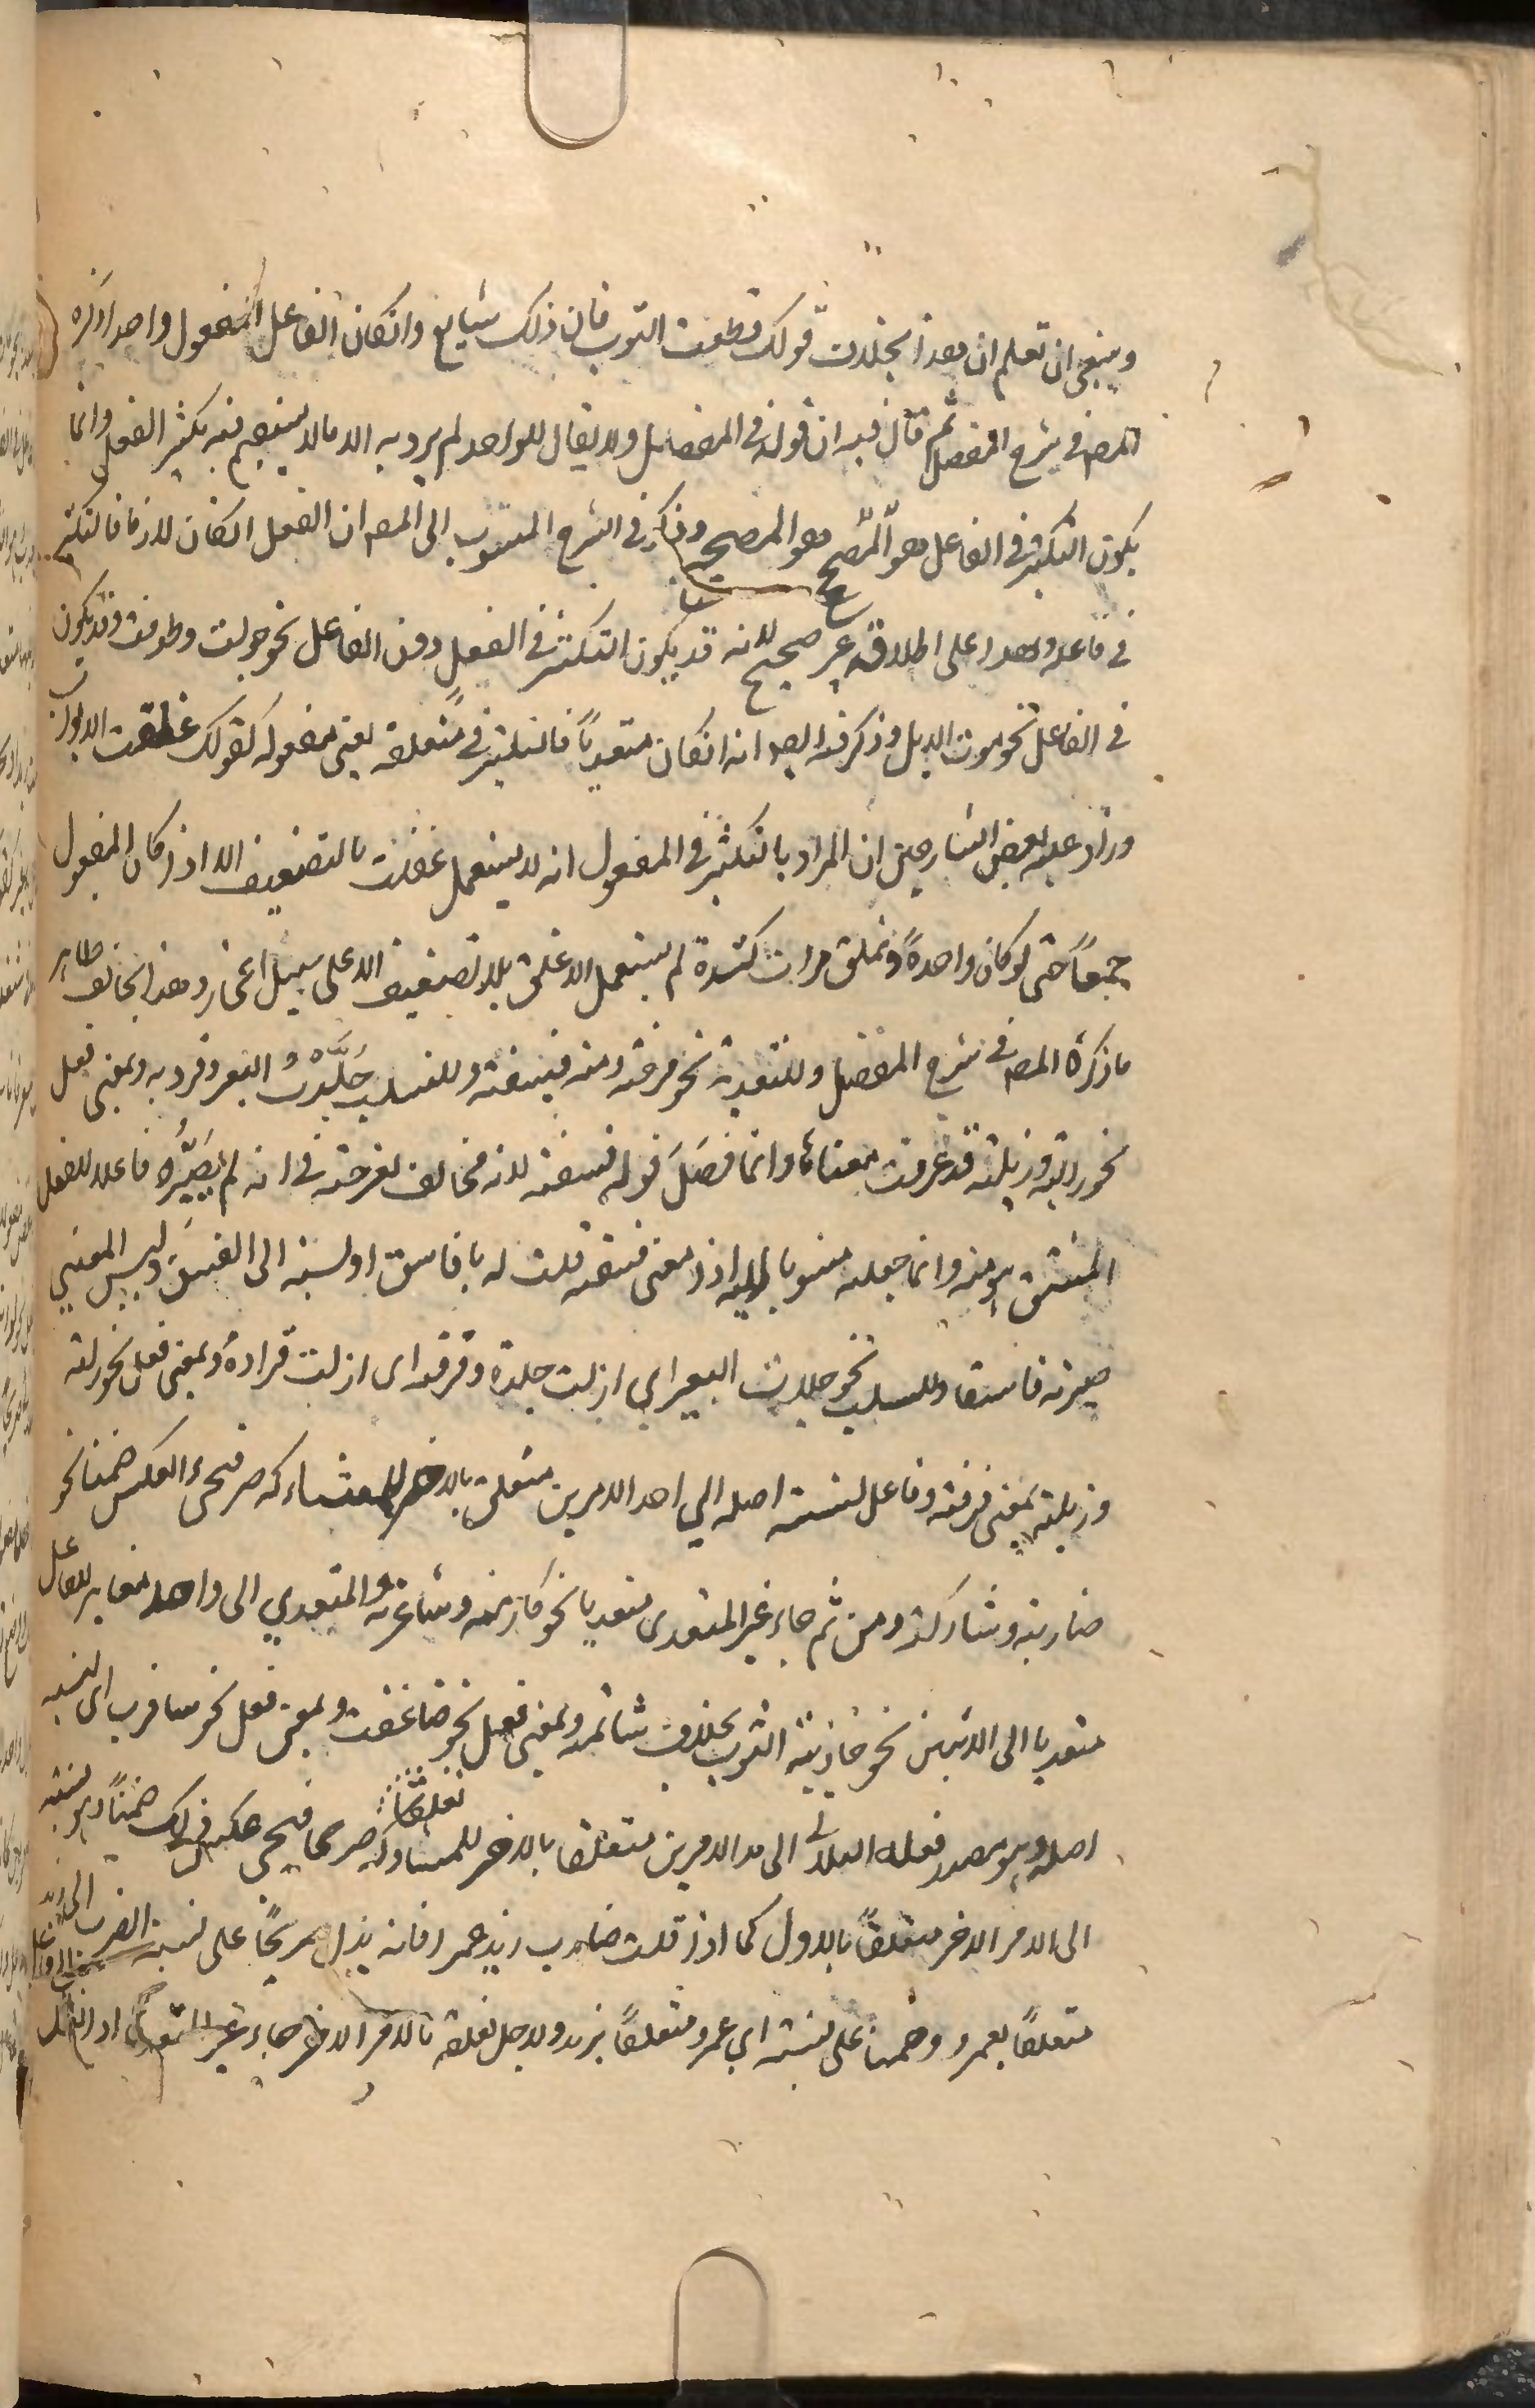 وينبغي ان تعلم ان هذا بخلاف قولك قطعت الثوب فان ذلك شايع وانكان الفاعل المفعول واحدا ذكره
المص في شرح المفصل ثم قال فيه ان قوله في المفصل ولا يقال للواحد لم يرد به الا ما لا يستقيم فيه تكثير الفعل وانما
يكون التكثير في الفاعل هو المصحح هو المصحح وذكر في الشرح المنسوب الى المص ان الفعل انكان لازما فالتكثير
في فاعله وهذا على اطلاقه غير صحيح لانه قد يكون التكثير في الفعل دون الفاعل نحو جولت وطوفت وقد يكون
في الفاعل نحو موت الابل وذكر فيه ايضا انه انكان متعدياً فالتكثير في متعلقه يعني مفعوله كقولك غلقت الابواب
وزاد عليه بعض الشارحين ان المراد بالتكثير في المفعول انه لا يستعمل غلقت بالتضعيف الا اذا كان المفعول
جمعاً حتى لو كان واحدةً وغلق مرات كثيرة لم يستعمل الا غلق بلا تضعيف الا على سبيل المجاز وهذا يخالف ظاهر
ما ذكره المص في شرح المفصل وللتعدية نحو فرحته ومنه فسقته وللسلب جَلَّدْتُ البعير وقردته وبمعنى فعل
نحو زلته وزيلته قد عرفت معناها وانما فصَلَ قوله فسقته لانه مخالف لفرحته في انه لم يُصَيِّرُه فاعلا للفعل
المشتق هو منه وانما جعله منسوبا اليه اذ معنى فسقته قلت له يا فاسق او نسبته الى الفسق وليس المعنى
صيرته فاسقا وللسلب نحو جلدت البعير اي ازلت جلده وقردته اى ازلت قراده وبمعنى فعل نحو زلته
وزيلته بمعنى فرقته وفاعل لنسبة اصله الي احد الامرين متعلق بالاخر للمشاركه صريحا فيجيء العكس ضمنا نحو
ضاربته وشاركته ومن ثم جاء غير المتعدى متعديا نحو كارمته وشاعرته والمتعدي الى واحد مغاير للفاعل
متعديا الى الاثنين نحو جاذبته الثوب بخلاف شاتمته وبمعنى فعل نحو ضاعفت وبمعنى فعل نحو سافرت اي لنسبة
اصله وهو مصدر فعله الثلاثي الى احد الامرين متعلقا بالاخر تعلقا للمشاركة صريحا فيجي عكس ذلك ضمناً وهو نسبته
الى الامر الاخر متعلقاً بالاول كما اذا قلت ضارب زيد عمرا فانه يدل صريحًا على نسبة الضرب الى زيد
متعلقاً بعمرو وضمنا على نسبته اي عمرو متعلقاً بزيد ولاجل تعلقه بالامر الاخر جاء غير المتعدي اذا نقل